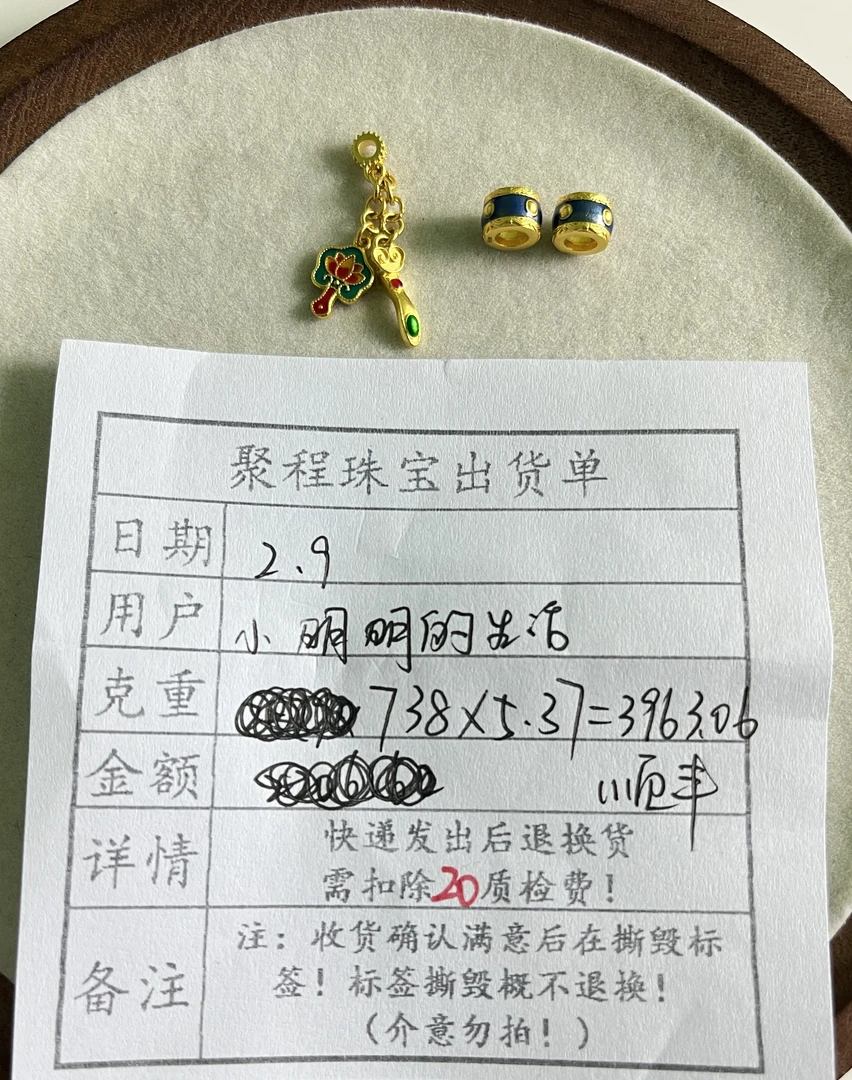 聚程珠宝出货单
日期 2.9
用户 小明明的生活
克重 738×5.37=3963.06
金额 顺丰
详情 快递发出后退换货
需扣除20质检费!
备注 注:收货确认满意后在撕毁标
签!标签撕毁概不退换!
(介意勿拍!)